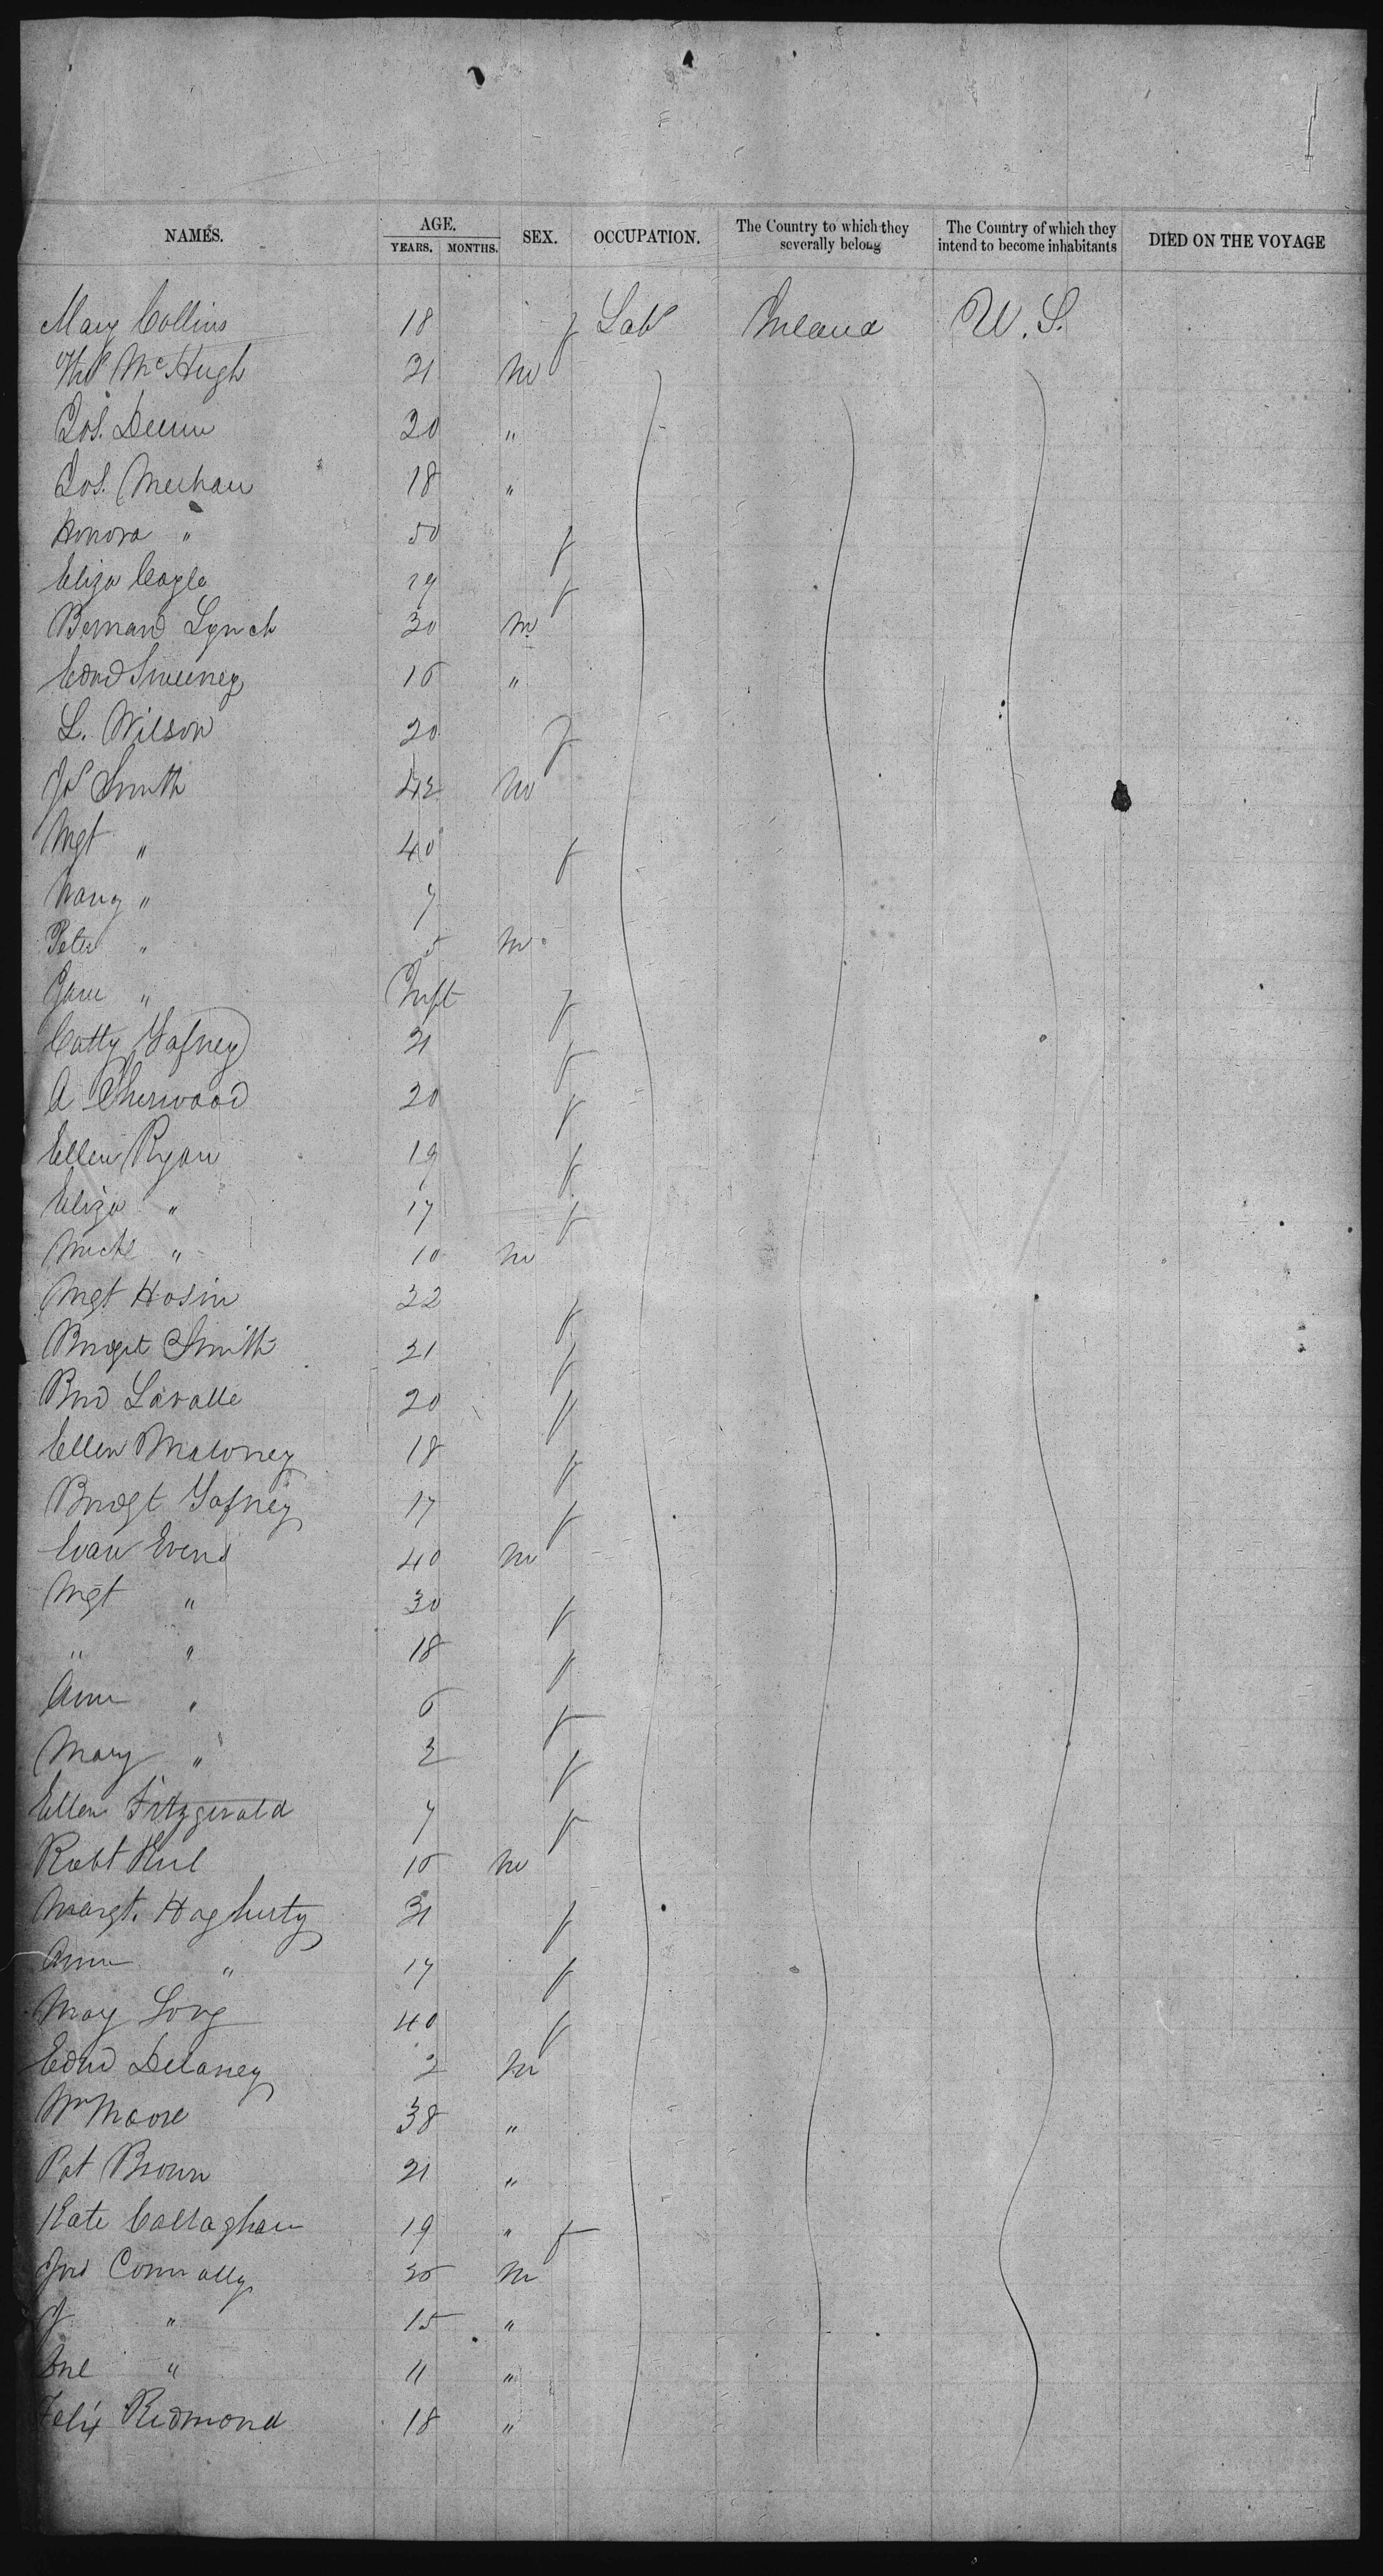 NAMES. AGE. YEARS. MONTHS. SEX. OCCUPATION. The Country to which they severally belong The Country of which they intend to become inhabitants DIED ON THE VOYAGE
Mary Collins 18 f Labr Ireland U.S.
Thos McHugh 21 m
Jos. 20 "
Jos. Meehan 18 "
Honora " 50 f
Eliza Cogle 19 f
Bernard Lynch 30 m
Edwd Sweeney 16 "
L. Wilson 20 f
Jos Smith 42 m
Mgt " 40 f
" 7
Peter " 5 m
Jane " Inft f
Catty Gafney 21 f
A Sherwood 20 f
Ellen Ryan 19 f
Eliza " 17 f
Michl " 10 m
Mgt Hosin 22 f
Bridget Smith 21 f
Brid Lavalle 20 f
Ellen Maloney 18 f
Bridgt Gafney 17 f
Evan Evens 40 m
Mgt " 30 f
" " 18 f
Ann " 6 f
Mary " 3 f
Ellen Fitzgerald 7 f
Robt 16 m
Margt. Hagherty 21 f
Ann " 17 f
May Long 40 f
Edwd Delaney 2 m
Wm Moore 38 "
Pat Brown 21 "
Kate Callaghan 19 " f
Jno Connolly 36 m
J " 15 "
" 11 "
Felix Redmond 18 "